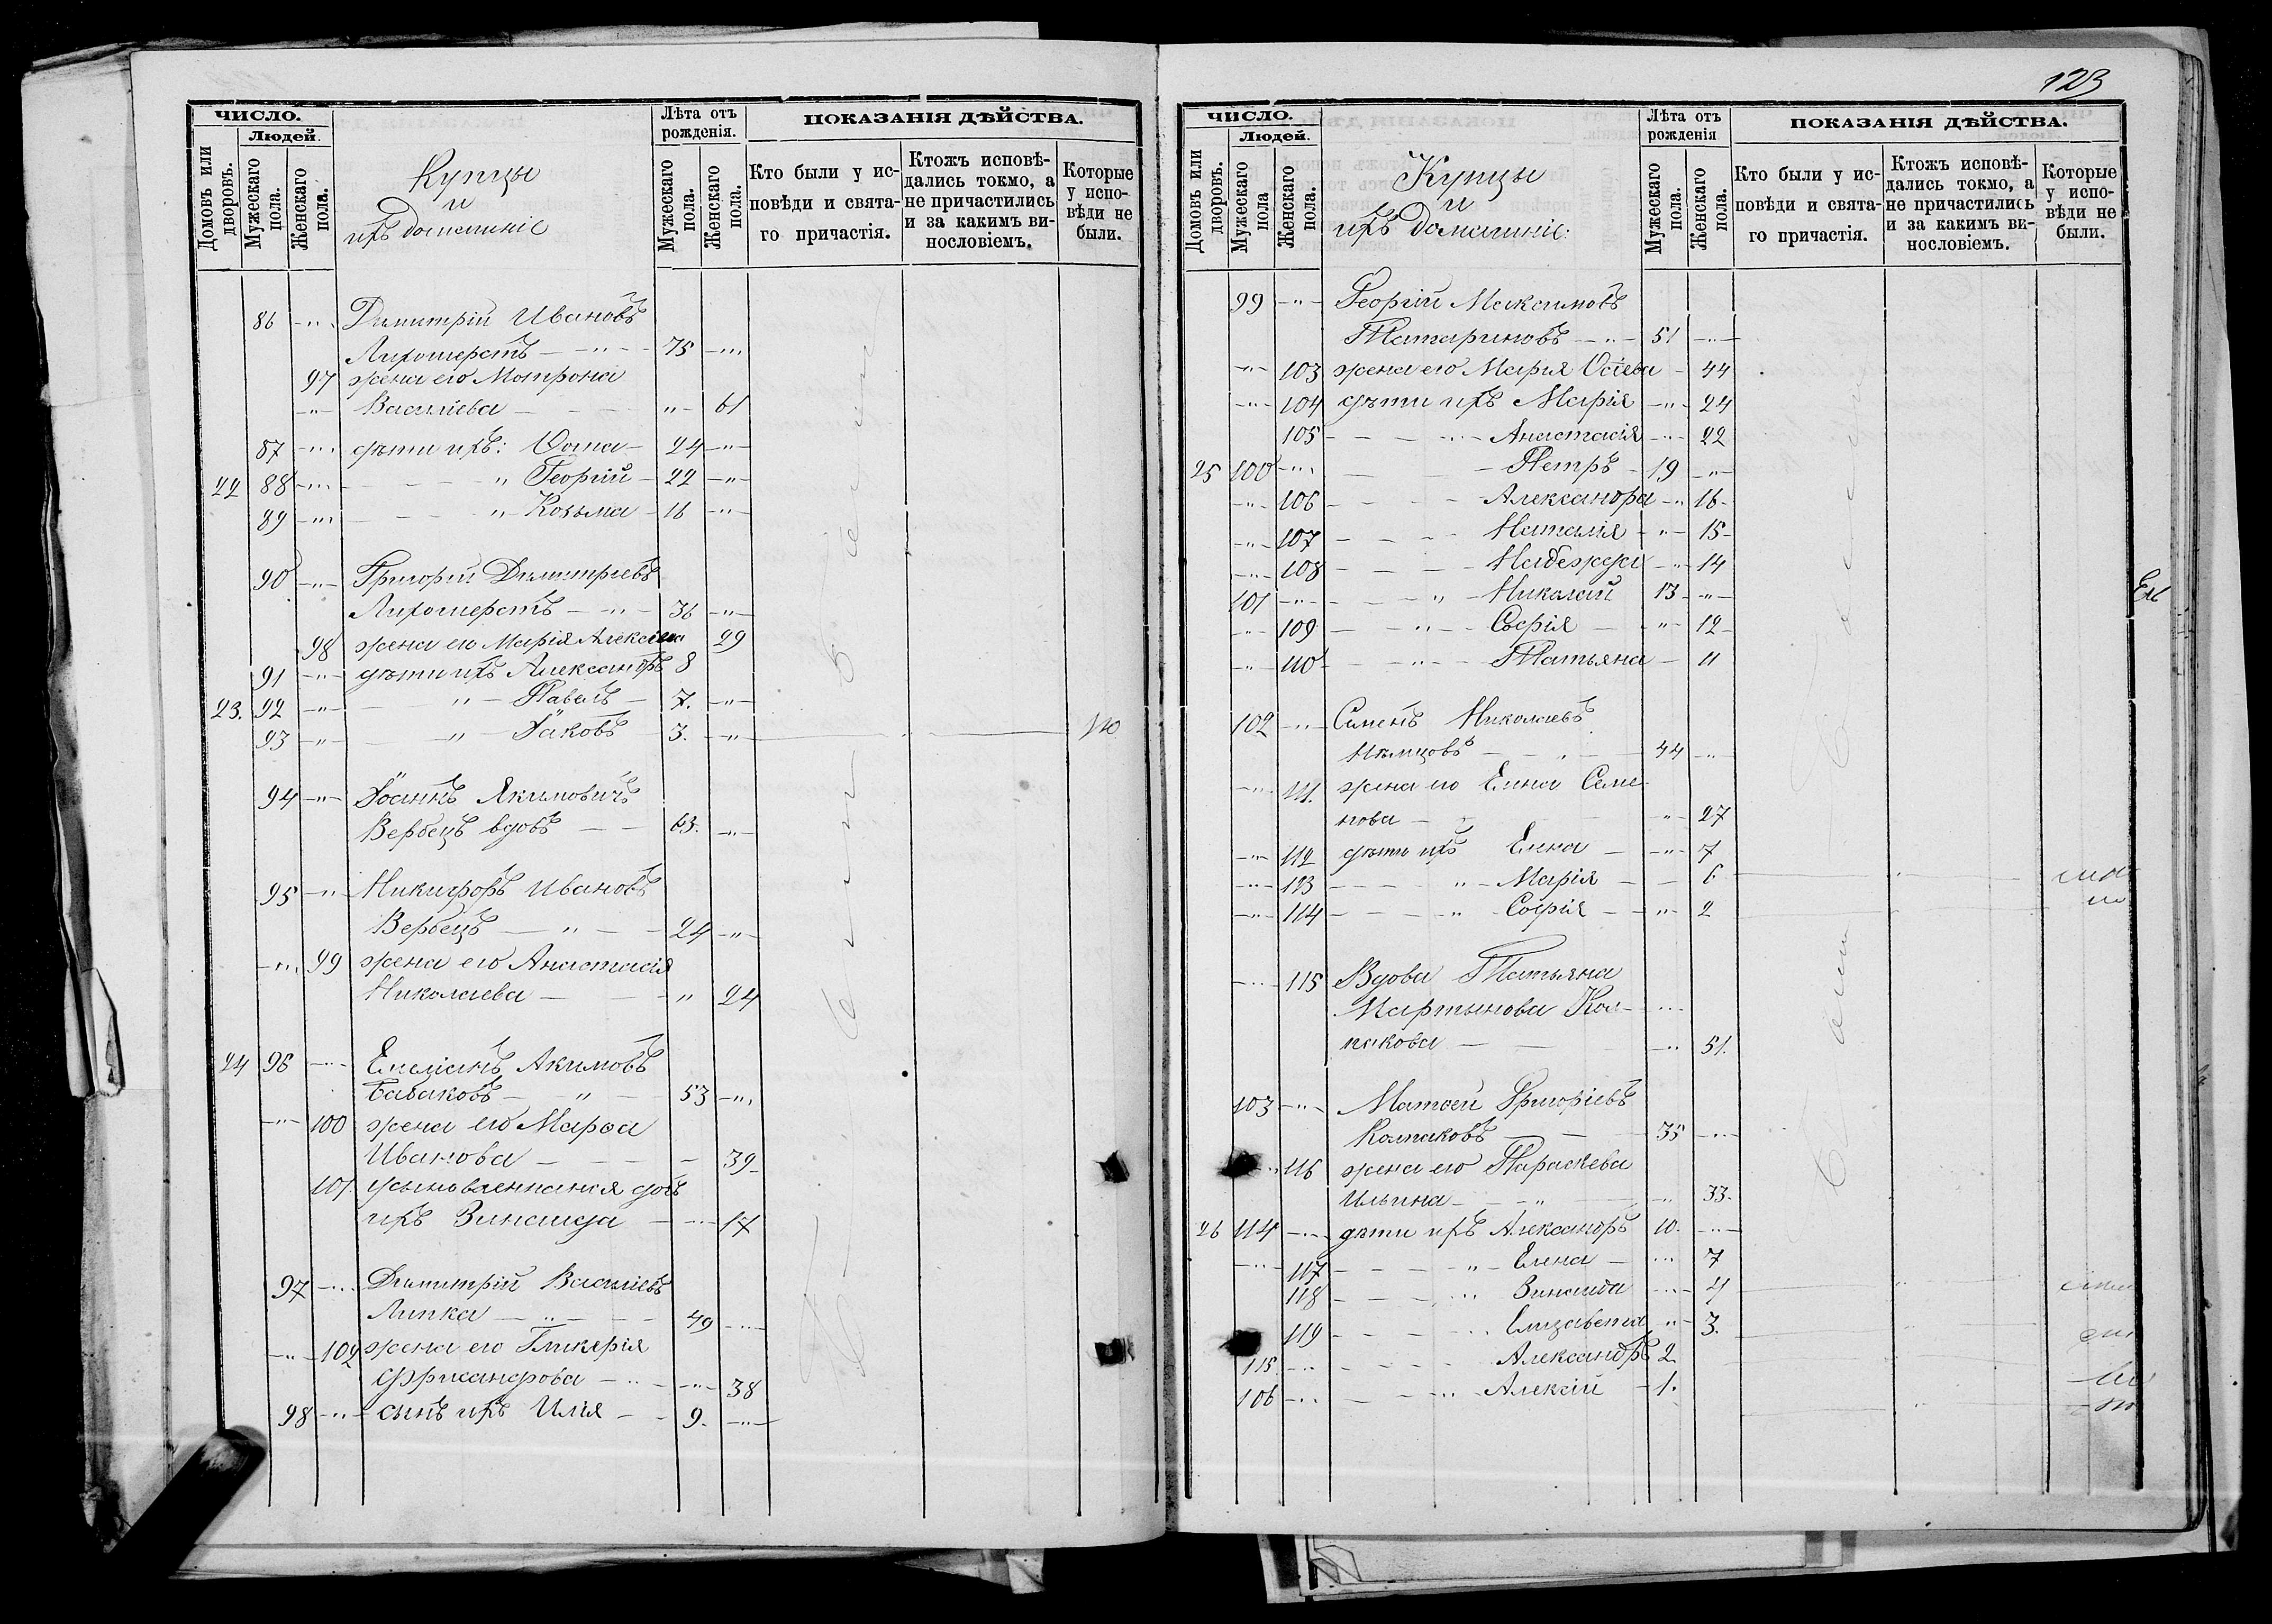 ЧИСЛО.
Людей.
Домовъ или дворовъ.
Мужескаго пола.
Женскаго пола.
Купцы
и
ихъ домашніе
Лѣта отъ рожденія.
Мужескаго пола.
Женскаго пола.
ПОКАЗАНІЯ ДѢЙСТВА.
Кто были у исповѣди и святаго причастія.
Ктожъ исповѣдались токмо, а не причастились и за какимъ винословіемъ.
Которые у исповѣди не были.
86 -"- Димитрій Ивановъ
Лихошерстъ - " - 75 -"-
97 жена его Мотрона
-"- Васильева - "- 61
87 -"- дѣти ихъ: Ѳома - 24 -"-
22 88 -"- " Георгій - 22 -"-
89 -"- " Козьма - 16 -"-
90 -"- Григорій Димитріевъ
Лихошерстъ - " - 36 -"-
98 жена его Марія 29
91 -"- дѣти ихъ Александръ 8
23. 92 -"- " - Павелъ - 7. -"-
93 -"- " - Іаковъ - 3. -"-
94 -"- Іоаннъ Якимовичъ
Вербецъ вдовъ - 63. -"-
95 -"- Никифоръ Ивановъ
Вербецъ - " - 24 -"-
-"- 99 жена его Анастасія
Николаева - " 24
24 96 -"- Емеліанъ Акимовъ
Бабаковъ - " - 53 -"-
-"- 100 жена его Марѳа
Иванова - 39-
101 усыновленная дочь
ихъ Зинаида - -"- 17
97 -"- Димитрій Василіевъ
Липка - " - 49 -"-
-"- 102 жена его Гликерія
- " - -"- 38
98 -"- сынъ ихъ Илія - 9. -"-
123
ЧИСЛО.
Людей.
Домовъ или дворовъ.
Мужескаго пола
Женскаго пола.
Купцы
и
ихъ домашніе:
Лѣта отъ рожденія
Мужескаго пола.
Женскаго пола.
ПОКАЗАНІЯ ДѢЙСТВА.
Кто были у исповѣди и святаго причастія.
Ктожъ исповѣдались токмо, а не причастились и за какимъ винословіемъ.
Которые у исповѣди не были.
99 -"- Георгій Максимовъ
Татариновъ - " - 51 -"-
-"- 103 жена его Марія - 44
-"- 104 дѣти ихъ Марія -"- 24
105 - Анастасія -"- 22
25 100 -"- - Петръ - 19 -"-
-"- 106 - Александра -"- 16-
-"- 107 - Наталія -"- 15-
-"- 108 - Надежда -"- 14
101 -"- " - Николай 13 -"-
-"- 109 - " - Софія - -"- 12-
-"- 110 - " - Татьяна - 11
102 -"- Симеонъ Николаевъ
Нѣмцовъ - " - 44 -"-
-"- 111. жена его Елена Семе-
нова - -"- 27
-"- 112 дѣти ихъ Елена -"- 7
-"- 113 - " - Марія - 6
-"- 114 - " Софія - -"- 2
-"- 115 Вдова Татьяна
Мартынова Кол-
пакова - -"- 51.
103 -"- Матѳей Григоріевъ
Колпаковъ - 35 -"-
-"- 116 жена его Параскева
Ильина - " - 33.
26 114 -"- дѣти ихъ Александръ 10. -"-
-"- 117 - " - Елена - -"- 7
118 - " Зинаида -"- 4
119 - " Елизавета -"- 3.
115 -"- - Александръ 2
106 -"- - " Алексій - 1.